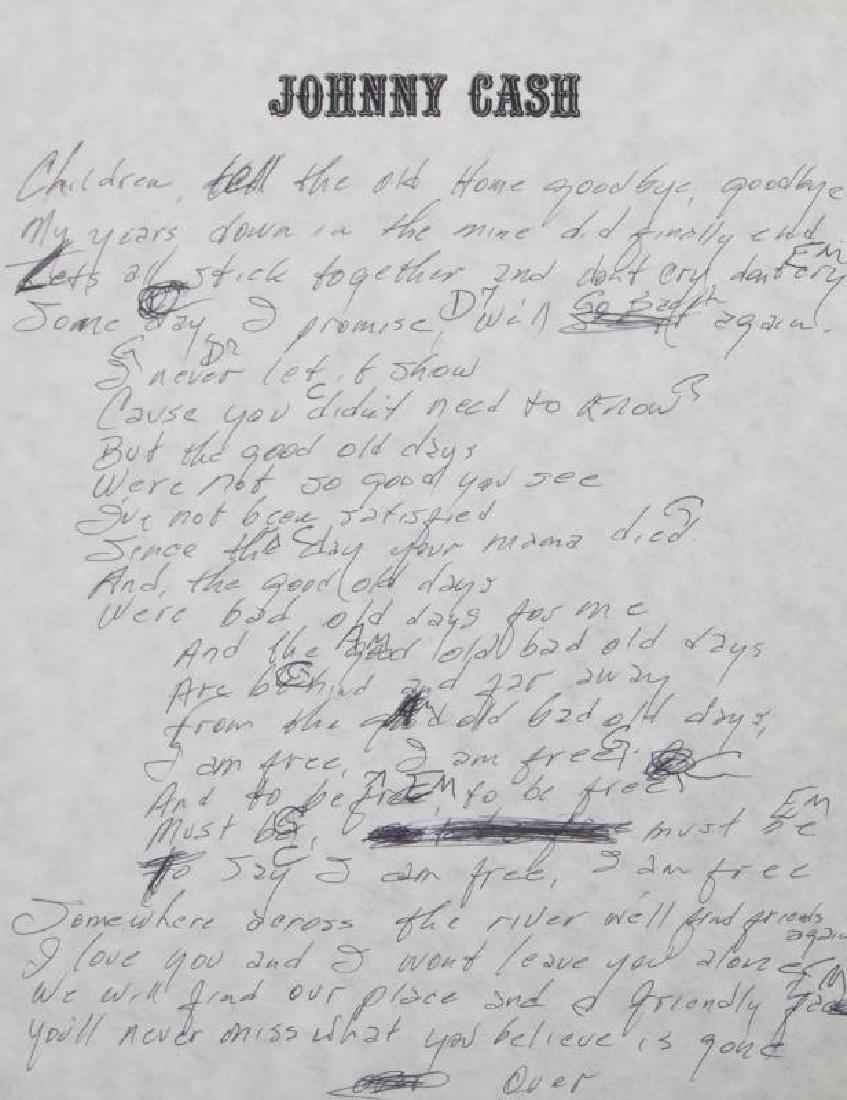 JOHNNY CASH
Children, tell the old Home goodbye, goodbye
My years down in the mine did finally end
Lets all stick together and dont cry, dont cry EM
Some day I promise, D7 will Go Back again.
G D7
I never let it show
C G
Cause you didn't need to know
But the good old days
Were not so good you see
I've not been satisfied
G
Since the day your mama died
C
And, the good old days
Were bad old days for me
Am
And the good old bad old days
G
Are behind and far away
from the good old bad old days,
G
I am free, I am free C
And to be free, to be free
EM
G EM
Must be, must be
C
To say I am free, I am free
Somewhere across the river we'll find friends again
I love you and I wont leave you alone
EM
We will find our place and a friendly face
You'll never miss what you believe is gone
Over